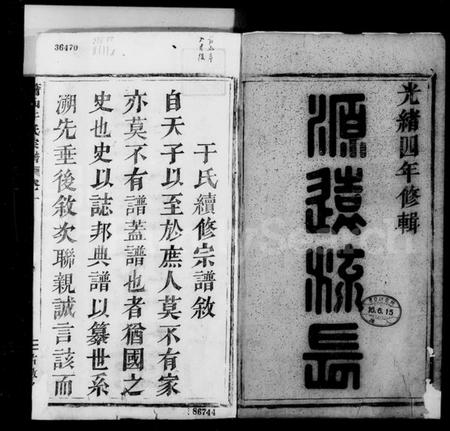 光緒四年修輯
源遠流長
10.6.15
36470
于氏續修宗譜敘
自天子以至於庶人莫不有家
亦莫不有譜蓋譜也者猶國之
史也史以誌邦典譜以纂世系
溯先垂後敘次聯親誠言該而
86744